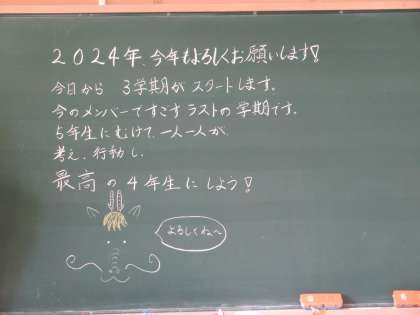 2024年、今年もよろしくお願いします!
今日から 3学期が スタートします。
今のメンバーですごす ラストの 学期です。
5年生に むけて、一人一人が、
考え、行動し、
最高 の 4年生に しよう!
よろしくね〜